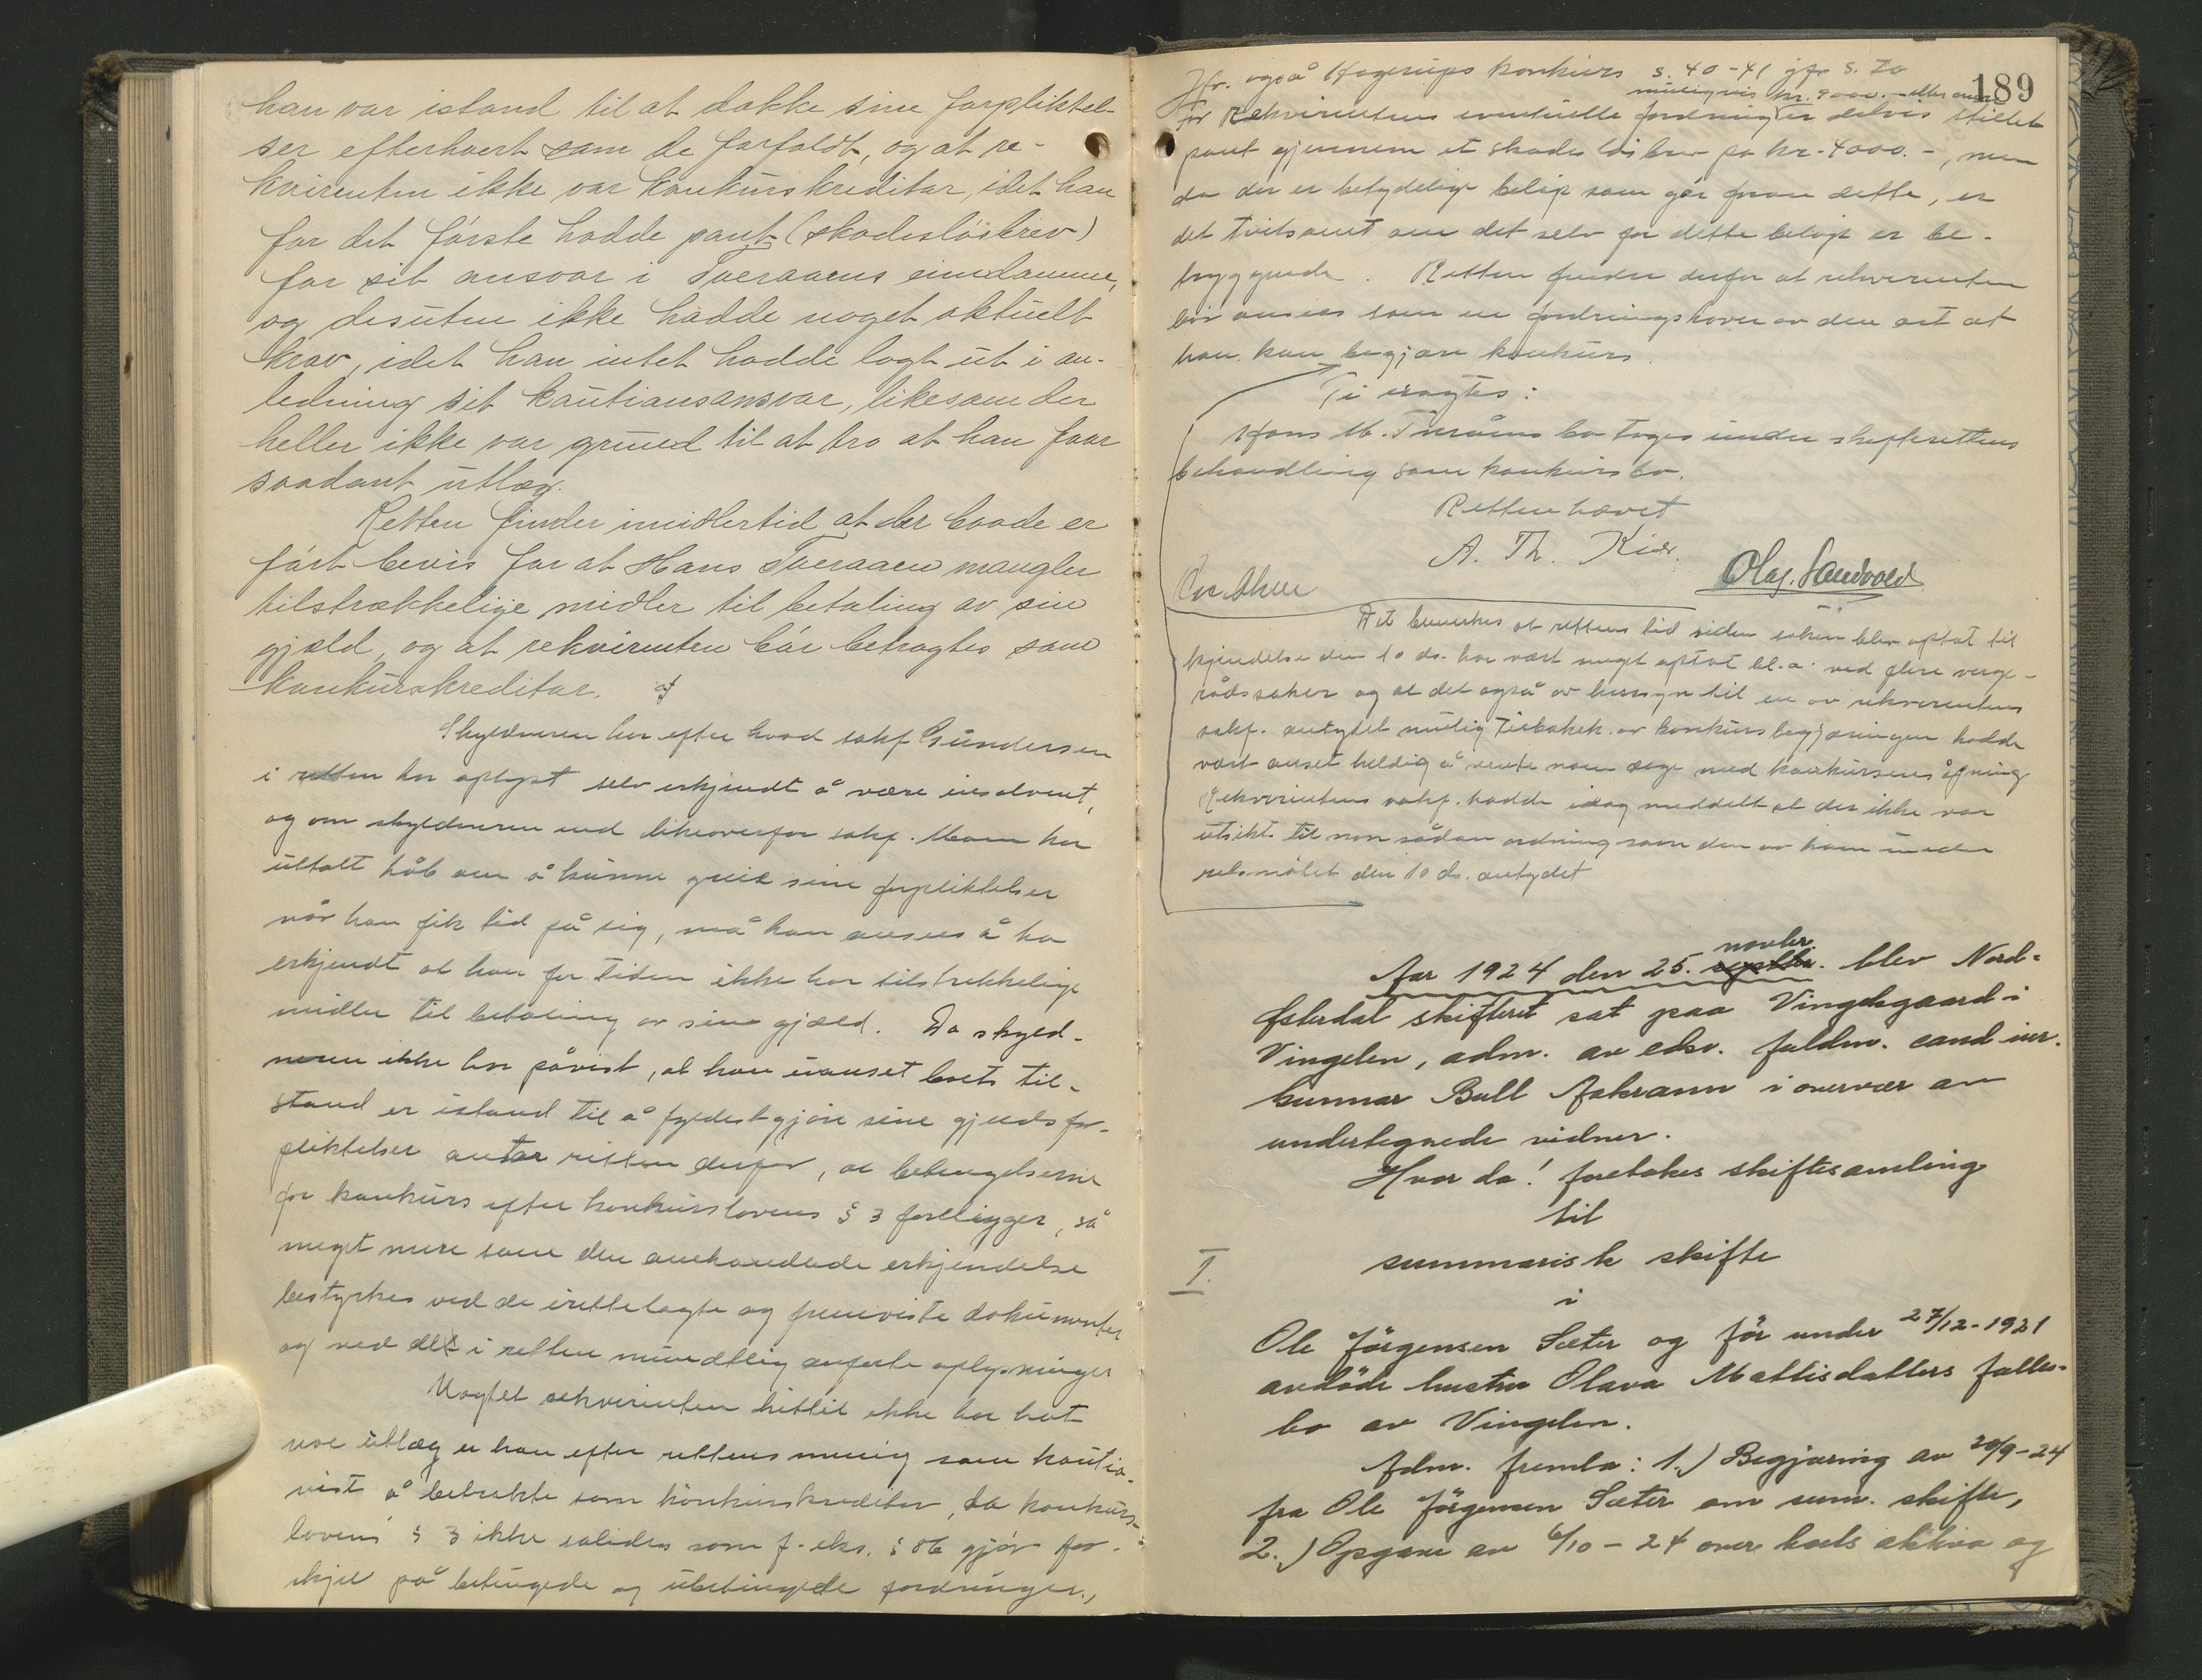 han var istand til at dække sine forpliktel-
ser efterhvert som de forfaldt, og at re-
kvirenten ikke var konkurskreditor, idet han
for det første hadde pant (skadesløsbrev)
for sit ansvar i Tveraaens eiendomme,
og desuten ikke hadde noget aktuelt
krav, idet han intet hadde lagt ut i an-
ledning sit kautionsansvar, likesom der
heller ikke var grund til at tro at han faar
saadant utlæg.
Retten finder imidlertid at der baade er
ført bevis for at Hans Tveraaen mangler
tilstrækkelige midler til betaling av sin
gjæld, og at rekvirenten bør betragtes som
konkurskreditor.
Skyldneren har efter hvad sakf. Gundersen
i retten har oplyst selv erkjendt å være insolvent,
og om skyldneren end likeoverfor sakf. Moum har
uttalt håb om å kunne greie sine forpliktelser
når han fik tid på sig, må han ansees å ha
erkjendt at han for tiden ikke har tilstrekkelige
midler til betaling av sin gjæld. Da skyld-
neren ikke har påvist, at han uanset boets til-
stand er istand til å fyldestgjøre sine gjelds for-
pliktelser antar retten derfor, at betingelserne
for konkurs efter konkurslovens § 3 foreligger, så
meget mere som den omhandlede erkjendelse
bestyrkes ved de irettelagte og fremviste dokumenter
og ved de i retten mundtlig anførte oplysninger
Uagtet rekvirenten hittil ikke har hat
noe utlæg er han efter rettens mening som kautio-
nist å betrakte som konkurskreditor, da konkurs-
lovens § 3 ikke saledes som f. eks. § 86 gjør for-
skjel på betingede og ubetingede fordringer.,
189
Jfr. også Hagerups konkurs s. 40-41 jfr s. 70
muligvis kr. 9000.- eller mer
For Rekvirentens eventuelle fordring er delvis stillet
pant gjennem et skadesløsbrev på kr. 4000.-, men
da der er betydelige beløp som går foran dette, er
det tvilsomt om det selv for dette beløp er be-
tryggende. Retten finder derfor at rekvirenten
bør ansees som en fordringshaver av den art at
han kan begjære konkurs.
Ti eragtes:
Hans M. Tveråens bo toges under skifterettens
behandling som konkursbo.
Retten hævet
A. Th. Kiær.
Olaf Sandvold
Det bemerkes at rettens tid siden saken blev optat til
kjendelse den 10 ds. har vært meget optat bl.a. ved flere verge-
rådssaker og at det også av hensyn til en av rekvirentens
sakf. antydet mulig tilbakek. av konkursbegjæringen hadde
vært anset heldig å vente noen dage med konkursens åpning
Rekvirentens sakf. hadde idag meddelt at der ikke var
utsikt til noen sådan ordning som den av ham under
retsmøtet den 10 ds. antydet
novbr.
Aar 1924 den 25. septbr. blev Nord-
Østerdal skifteret sat paa Vingelsgaard i
Vingelen, adm. av edsv. fuldm. cand jur.
Gunnar Bull Aakrann i overvær av
undertegnede vidner.
Hvor da! foretokes skiftesamling
til
I. summarisk skifte
i
Ole Jørgensen Sæter og før under 27/12-1921
avdøde hustru Olava Mattisdatters fælles-
bo av Vingelen.
Adm. fremla: 1.) Begjæring av 20/9-24
fra Ole Jørgensen Sæter om sum. skifte,
2.) Opgave av 6/10-24 over boets aktiva og